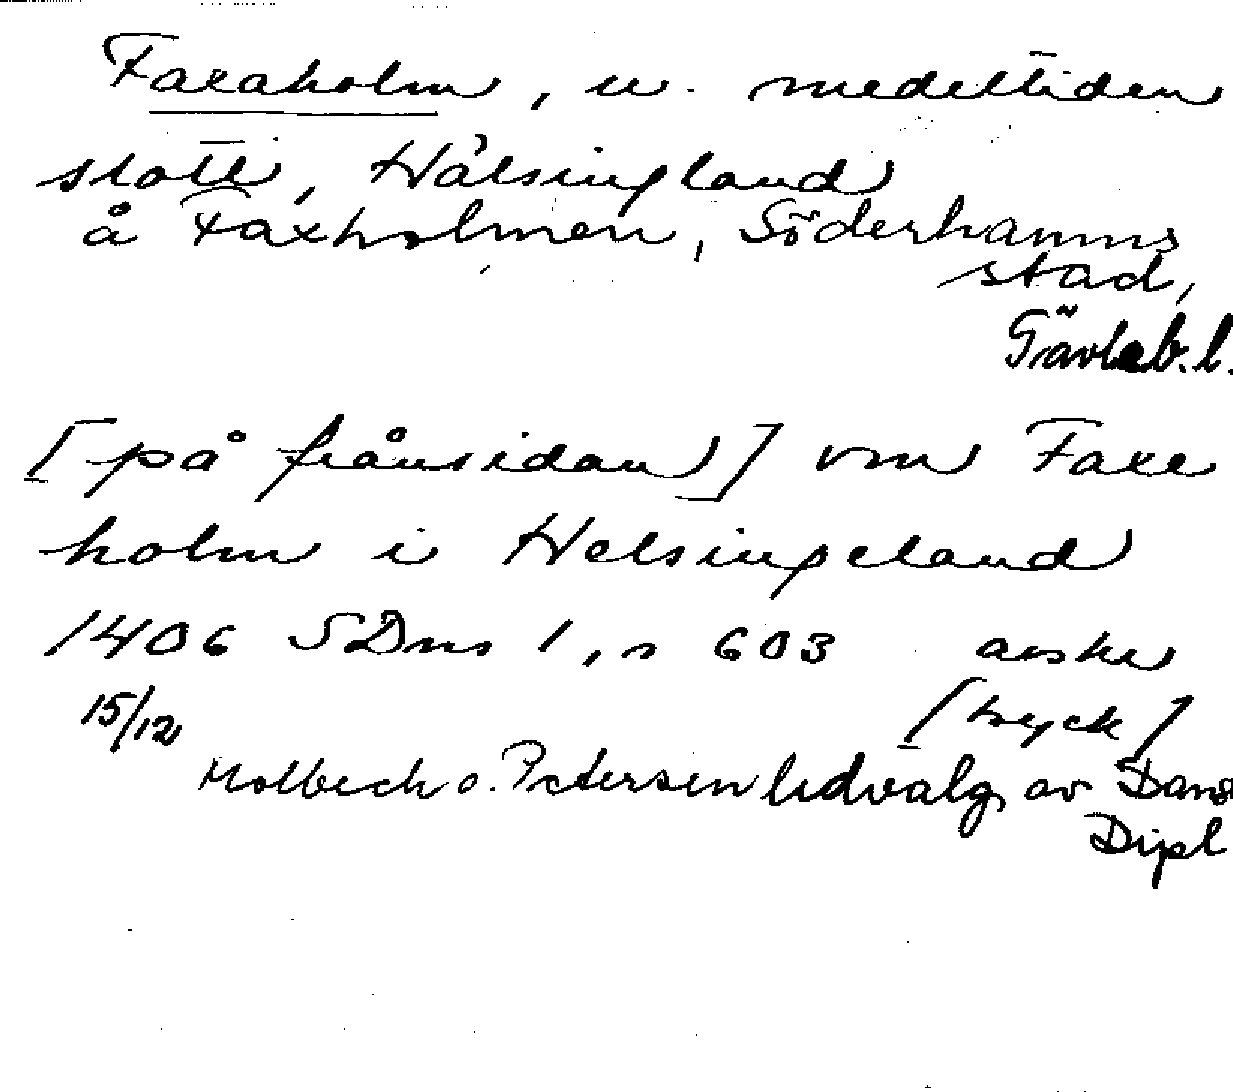 Faxaholm, u. medeltiden
slott, Hälsingland
å Faxholmen, Söderhamns
stad,
Gävleb. l.
[på frånsidan] om Faxe
holm i Helsingeland
1406 SDns 1, s 603 avskr
15/12 [tryck]
Molbech o. Petersen Udvalg av Dansk
Dipl